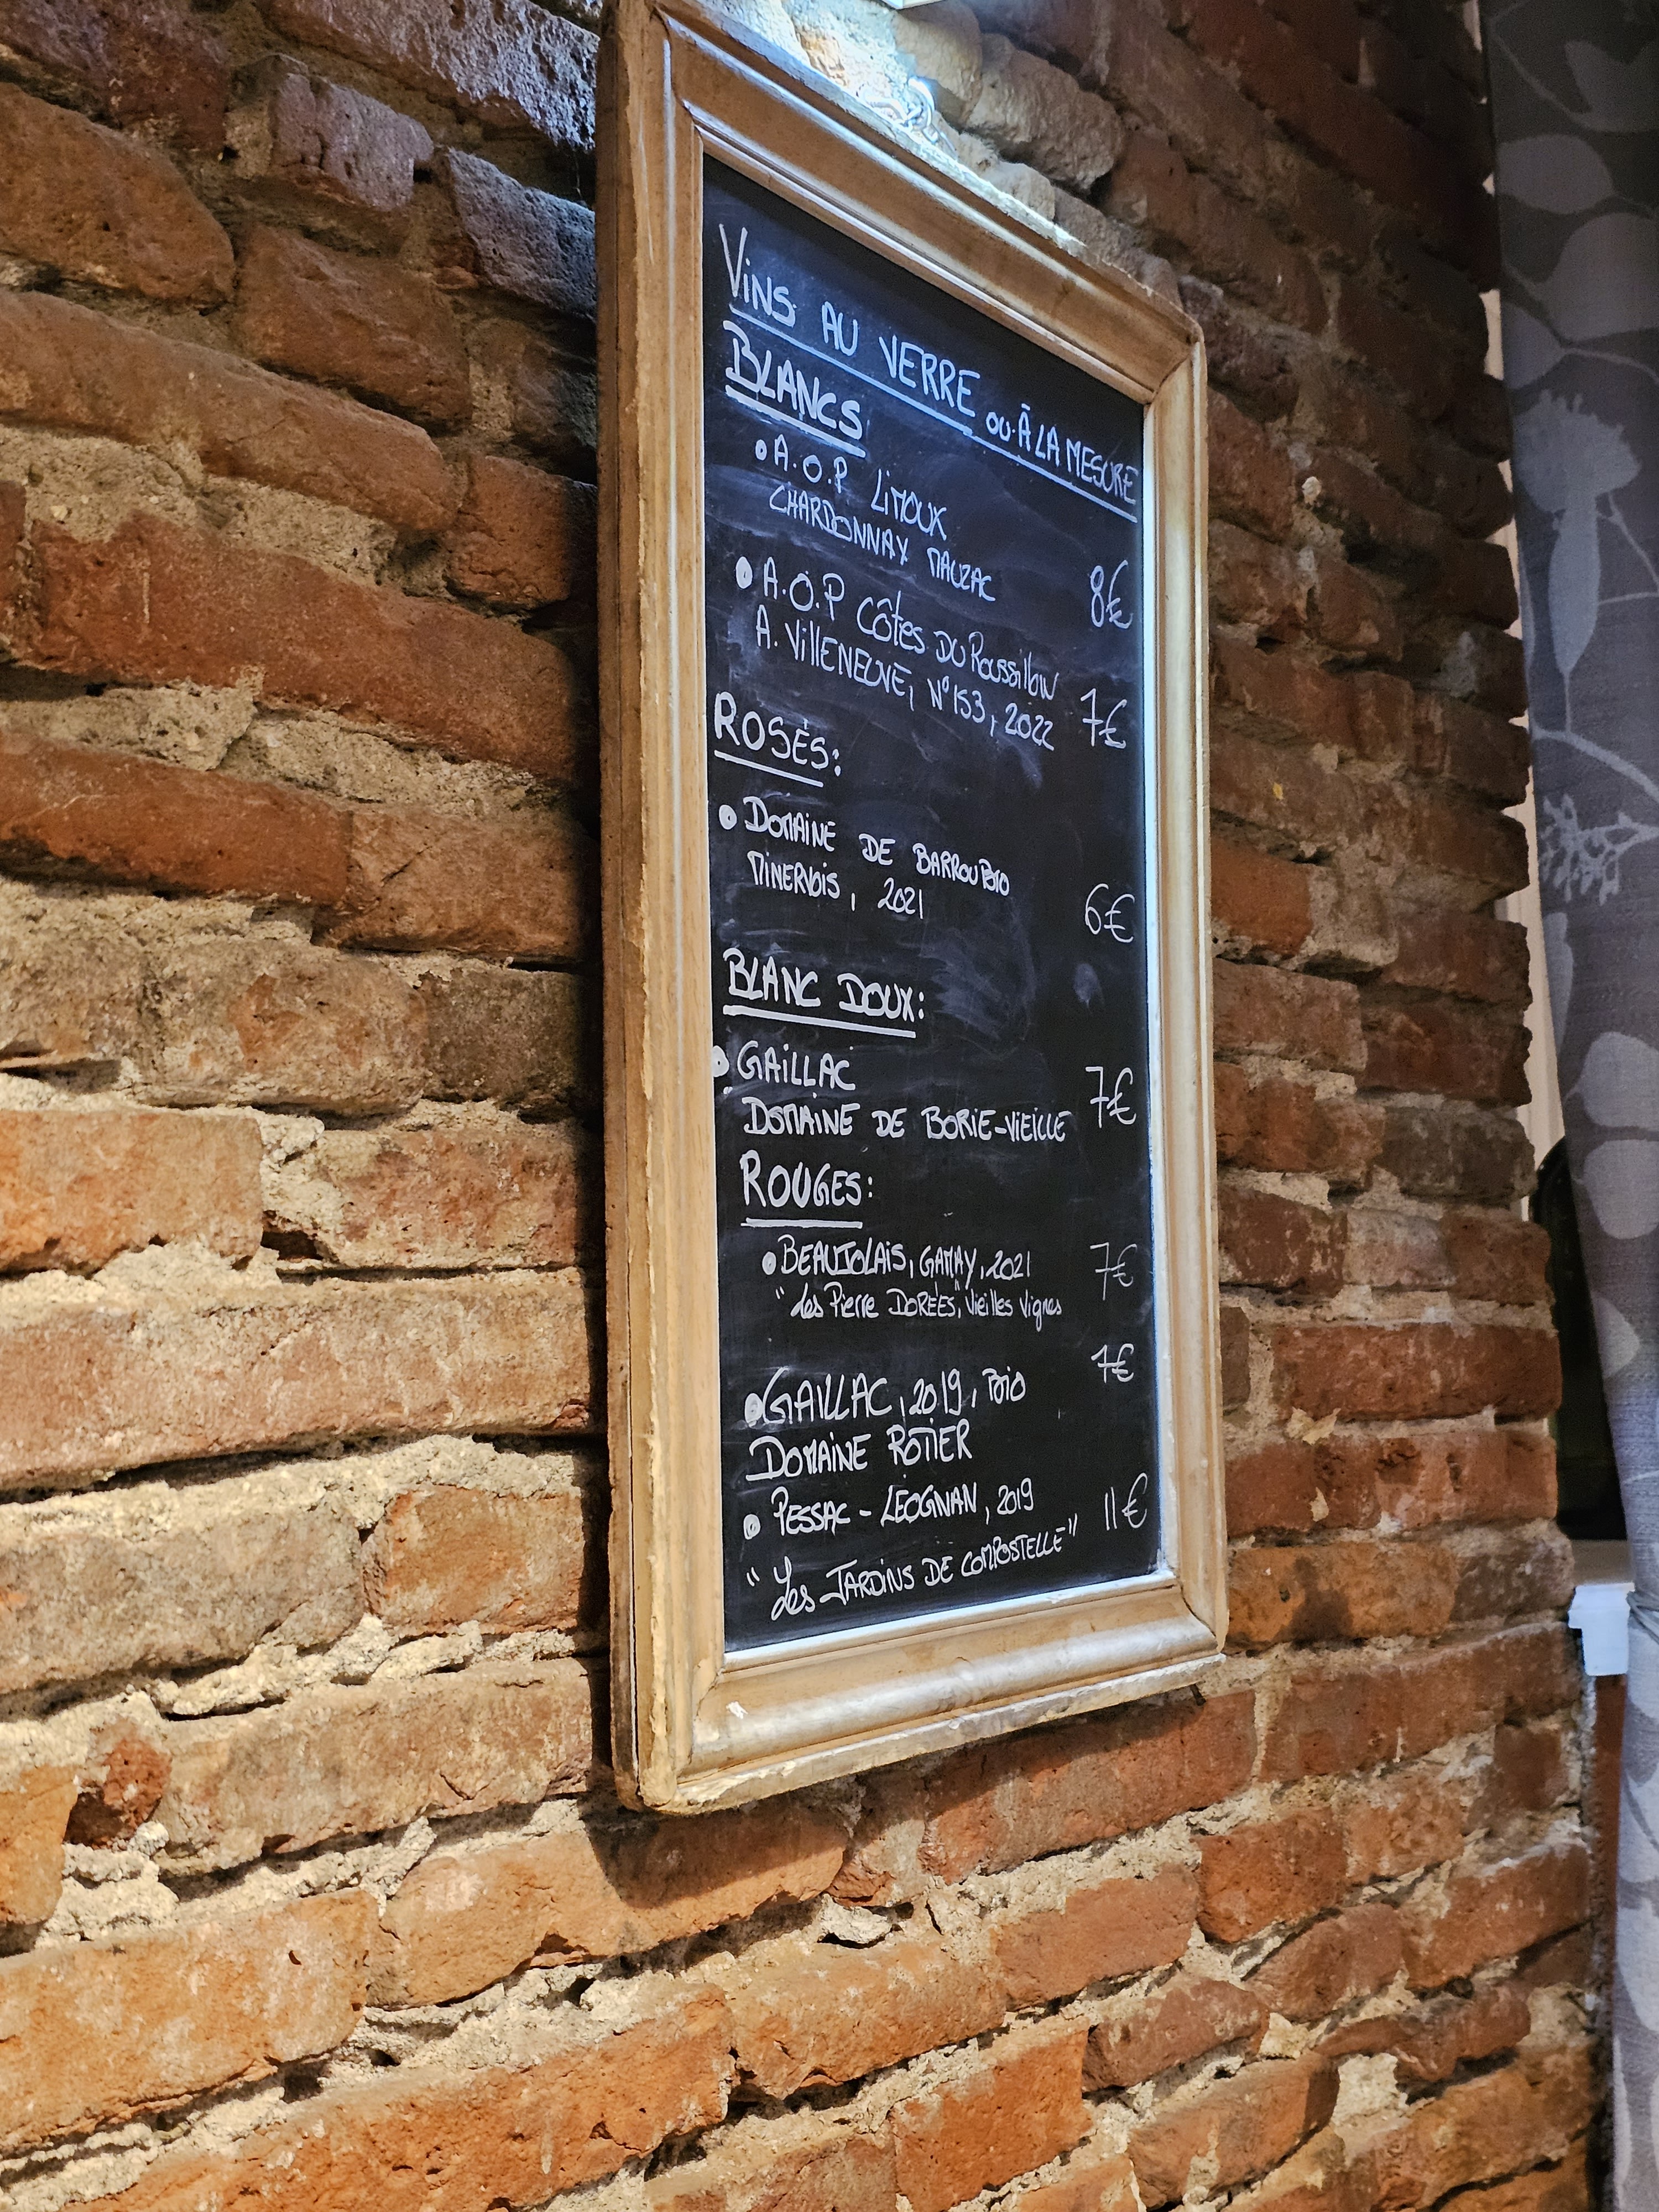 Vins AU VERRE ou À LA MESURE
BLANCS
A.O.P LiMOUX
CHARDONNAY MAUZAC 8€
A.O.P CôTes DU Roussillon
A. VillENEUVE, N°153, 2022 7€
ROSÉS:
DOMAiNE DE BARROUBIO
MINERVOIS, 2021 6€
BLANC DOUX:
GAiLLAC 7€
DOMAINE DE BORiE-ViEiLLE
ROUGES:
BEAUJOLAIS, GAMAY, 2021 7€
"Les PiErre DORÉES", Vieilles Vignes
7€
GAILLAC, 2019, BIO
DOMAINE ROTIER
PESSAC-LEOGNAN, 2019 11€
"Les JARDINS DE COMPOSTELLE"